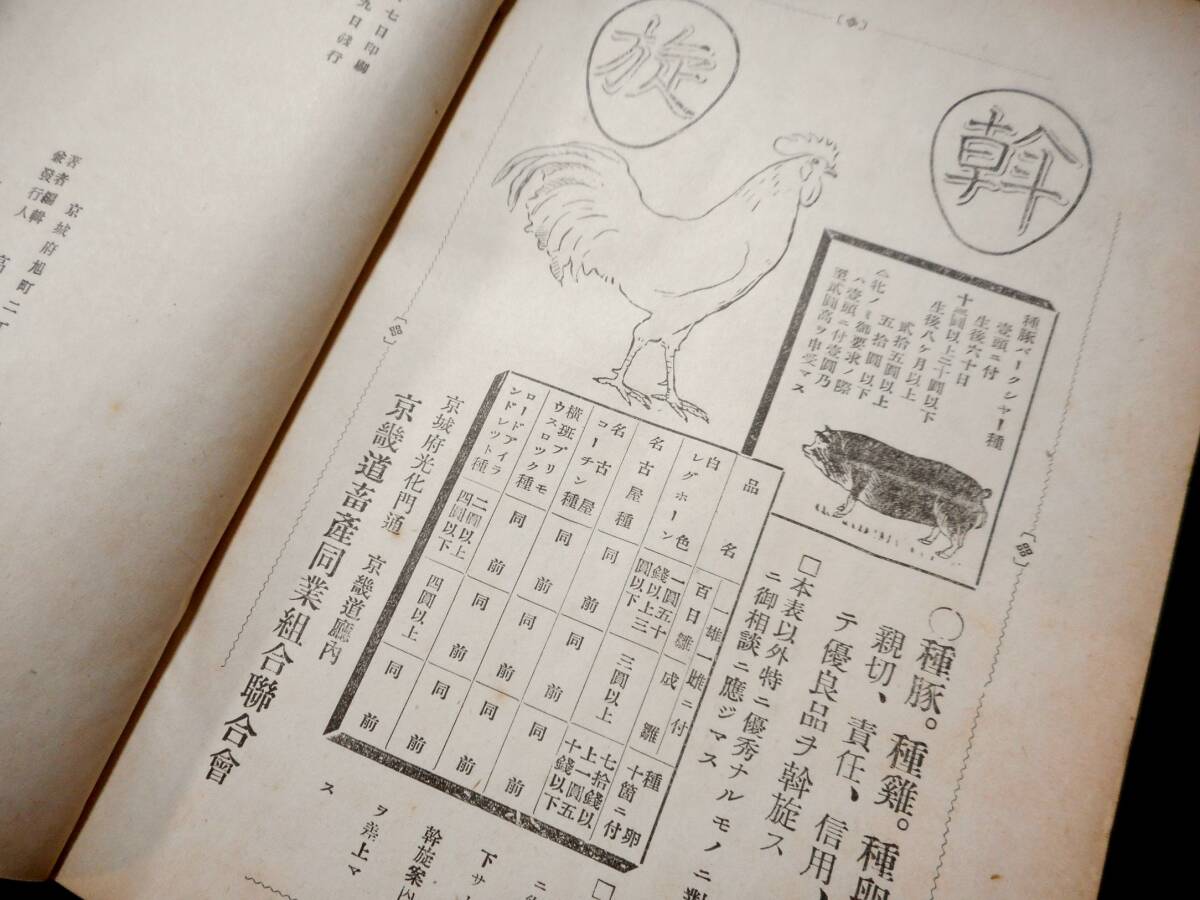 斡
旋
種豚バークシャー種
壹頭ニ付
生後六十日
十圓以上二十圓以下
生後八ケ月以上
貳拾五圓以上
五拾圓以下
△牝ノミ御要求ノ際
ハ壹頭ニ付壹圓乃
至貳圓高ヲ申受マス
○種豚。種雞。種卵
親切、責任、信用、
テ優良品ヲ斡旋ス
□本表以外特ニ優秀ナルモノニ對
ニ御相談ニ應ジマス
品名
一雄一雌ニ付
百日雛
成雛
種卵
十箇ニ付
白色レグホーン
一圓五十錢以上三圓以下
三圓以上
七拾錢以上一圓五十錢以下
名古屋種
同前
同前
同前
名古屋コーチン種
同前
同前
同前
横斑プリモウスロツク種
同前
同前
同前
ロードアイランドレツト種
二圓以上四圓以下
四圓以上
同前
下サ
斡旋案内
ヲ差上マ
ス
京城府光化門通 京畿道廳內
京畿道畜產同業組合聯合會
七日印刷
九日發行
著者
兼發行人
編輯
京城府旭町二丁